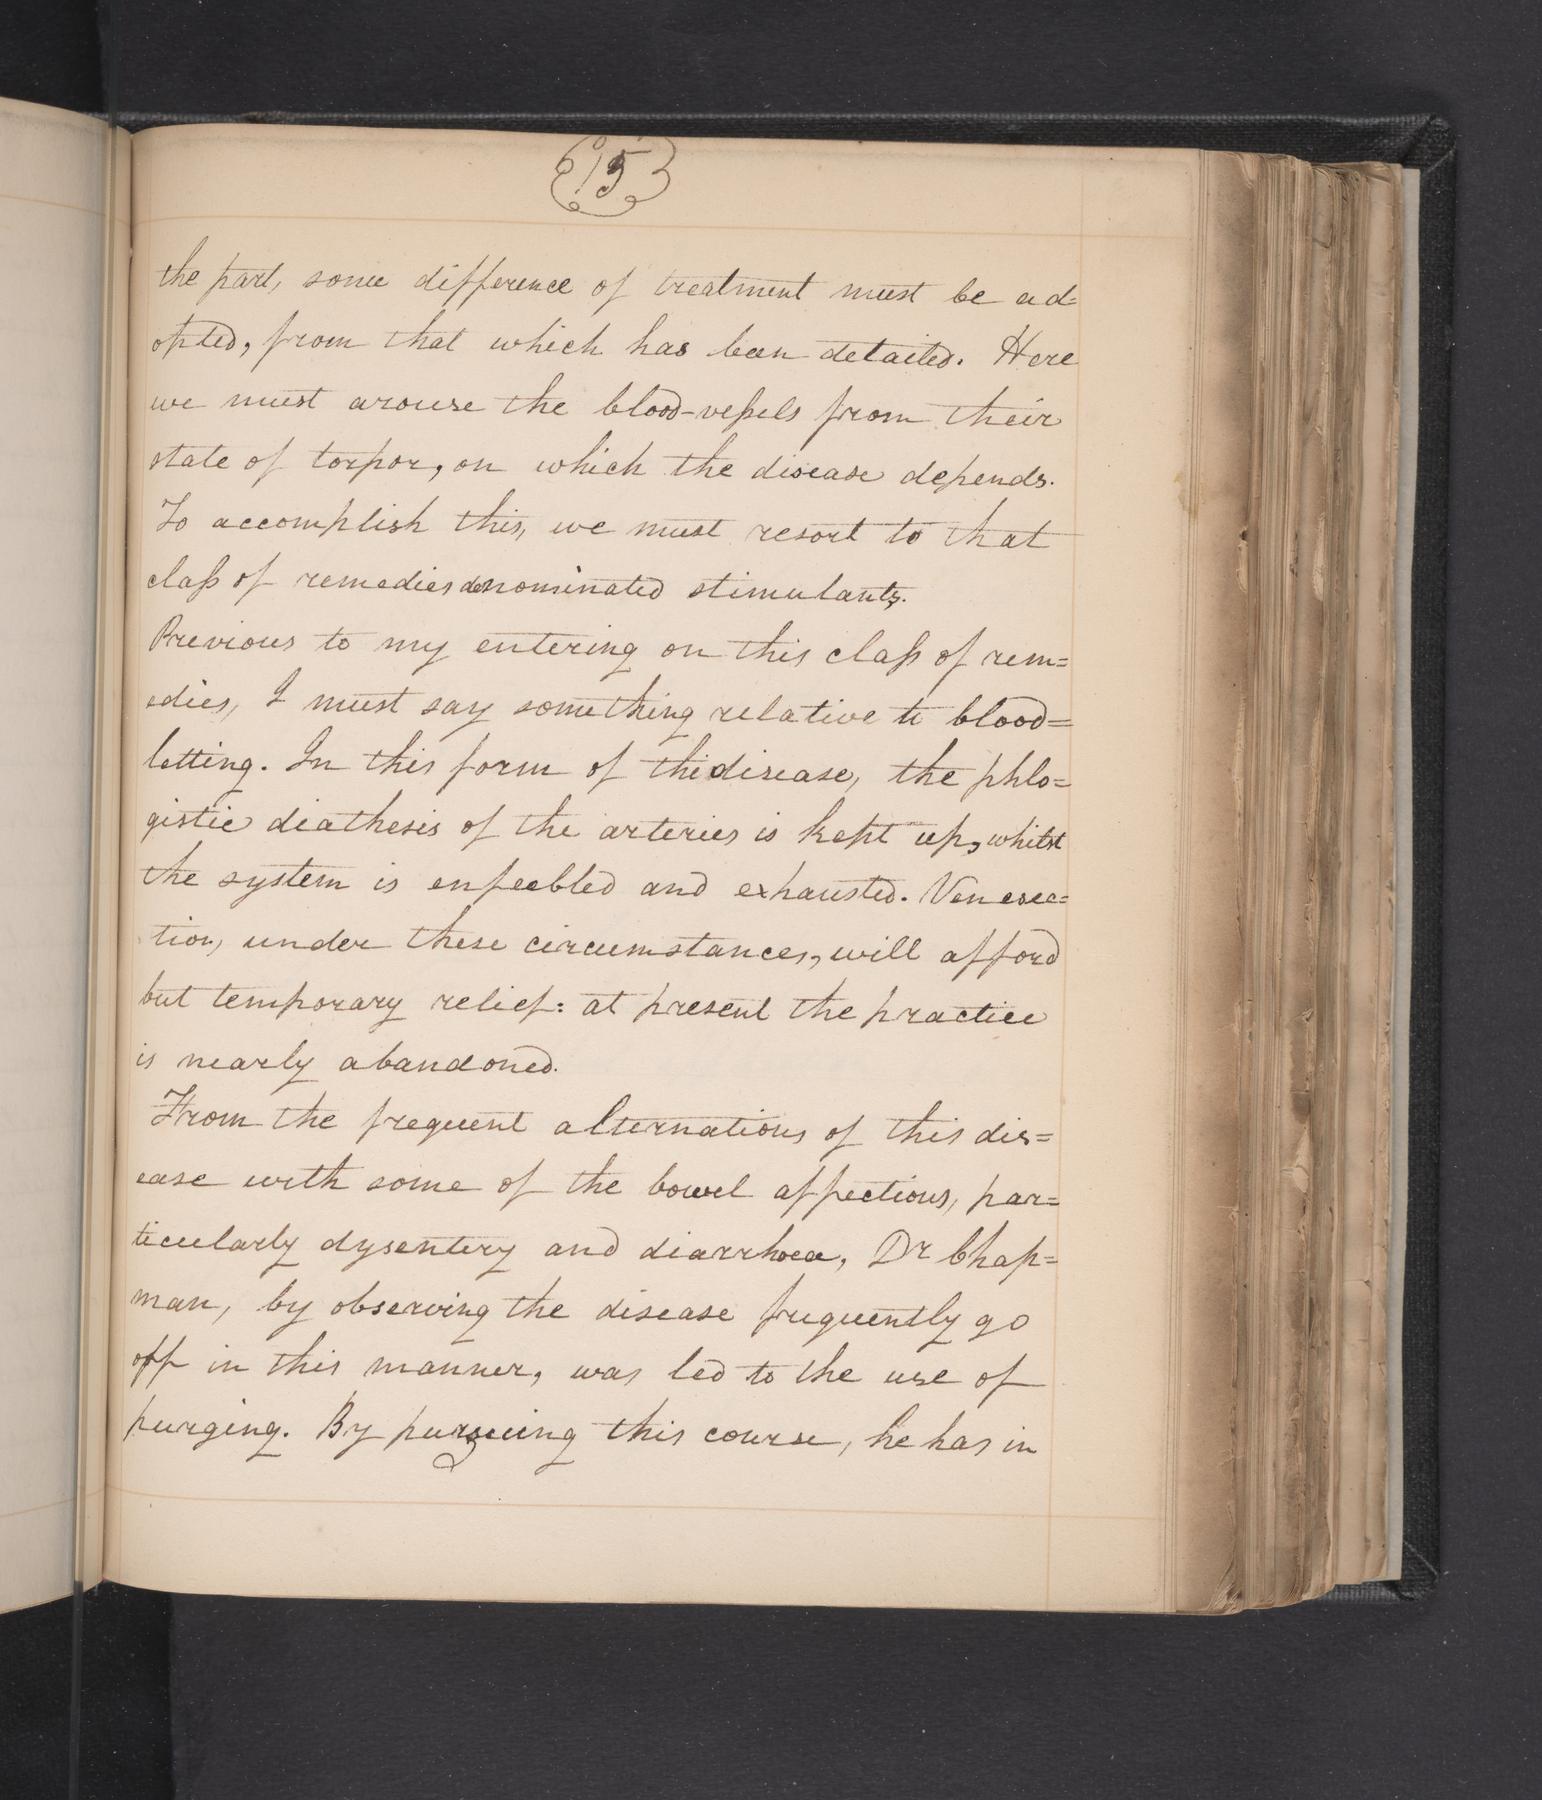 15
the part, some difference of treatment must be ad=
opted, from that which has been detailed. Here
we must arouse the blood-vessels from their
state of torpor, on which the disease depends.
To accomplish this, we must resort to that
class of remedies denominated stimulants.
Previous to my entering on this class of rem=
edies, I must say something relative to blood=
letting. In this form of the disease, the phlo=
gistic diathesis of the arteries is kept up, whilst
the system is enfeebled and exhausted. Venesec=
tion, under these circumstances, will afford
but temporary relief: at present the practice
is nearly abandoned.
From the frequent alternations of this dis=
ease with some of the bowel affections, par=
ticularly dysentery and diarrhoea, Dr Chap=
man, by observing the disease frequently go
off in this manner, was led to the use of
purging. By pursuing this course, he has in